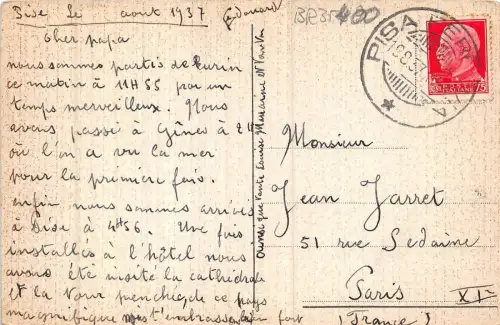 Pise Le août 1937
Edouard
Cher papa
nous sommes partis de Turin
ce matin à 11H55 par un
temps merveilleux. Nous
avons passé à Gênes à 2H
où l'on a vu la mer
pour la première fois.
enfin nous sommes arrivés
à Pise à 4H56. Une fois
installés à l'hôtel nous
avons été visité la cathédrale
et la Tour penchée de ce pays
magnifique t'embrasse bien fort
Ainsi que tante Louise
PISA
ITALIANE
75
Monsieur
Jean Jarret
51 rue Sedaine
Paris XIe
(France)